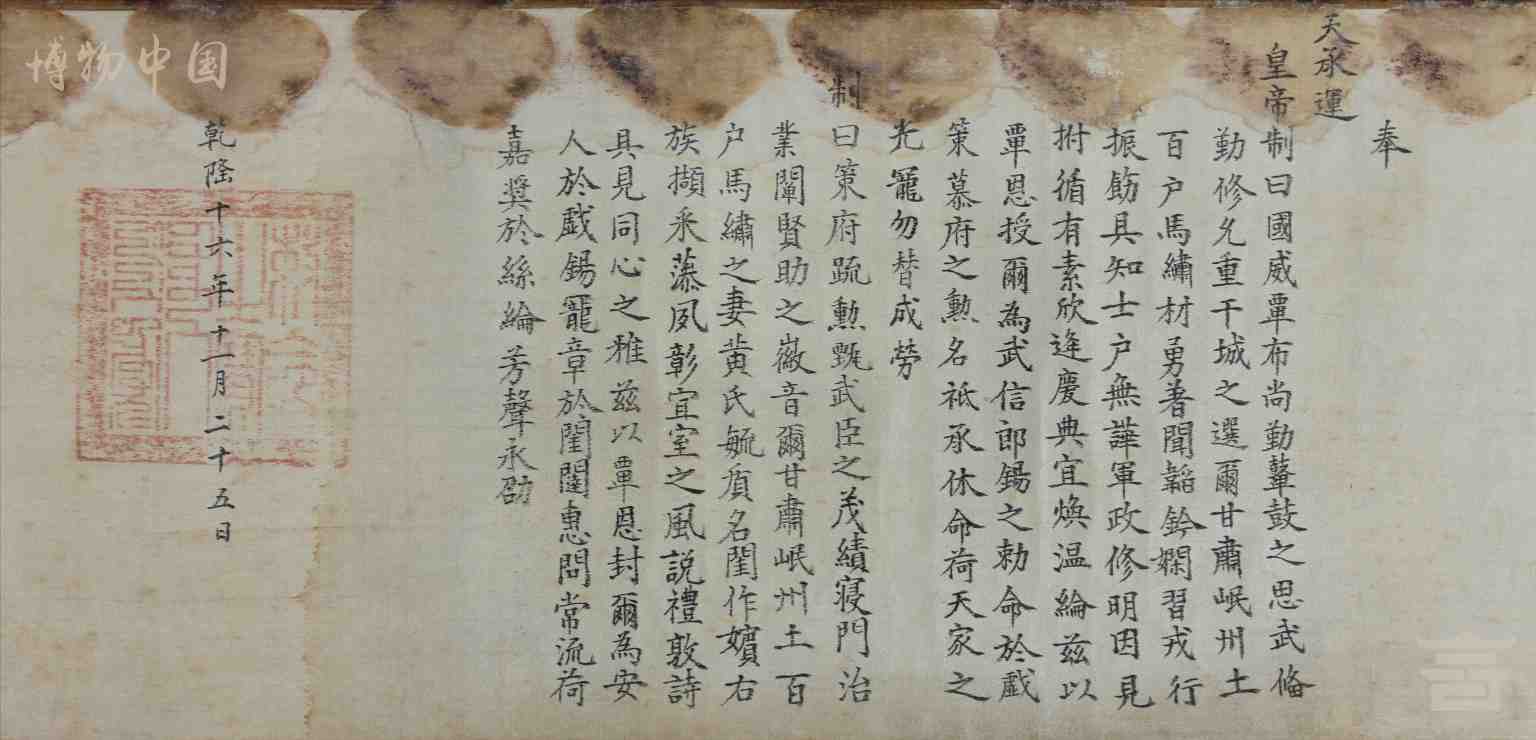 奉
天承運
皇帝制曰國威覃布尚勤鼙鼓之思武備
勤修允重干城之選爾甘肅岷州土
百户馬繡材勇著聞韜鈐嫻習戎行
振飭具知士户無譁軍政修明因見
拊循有素欣逢慶典宜煥温綸兹以
覃恩授爾為武信郎錫之勅命於戲
策幕府之勲名祗承休命荷天家之
光寵勿替成勞
制曰策府疏勲甄武臣之茂績寝門治
業闡賢助之徽音爾甘肅岷州土百
户馬繡之妻黄氏毓質名閨作嬪右
族擷采蘩夙彰宜室之風説禮敦詩
具見同心之雅兹以覃恩封爾為安
人於戲錫寵章於閨闥惠問常流荷
嘉奨於絲綸芳聲永劭
乾隆十六年十一月二十五日
博物中国